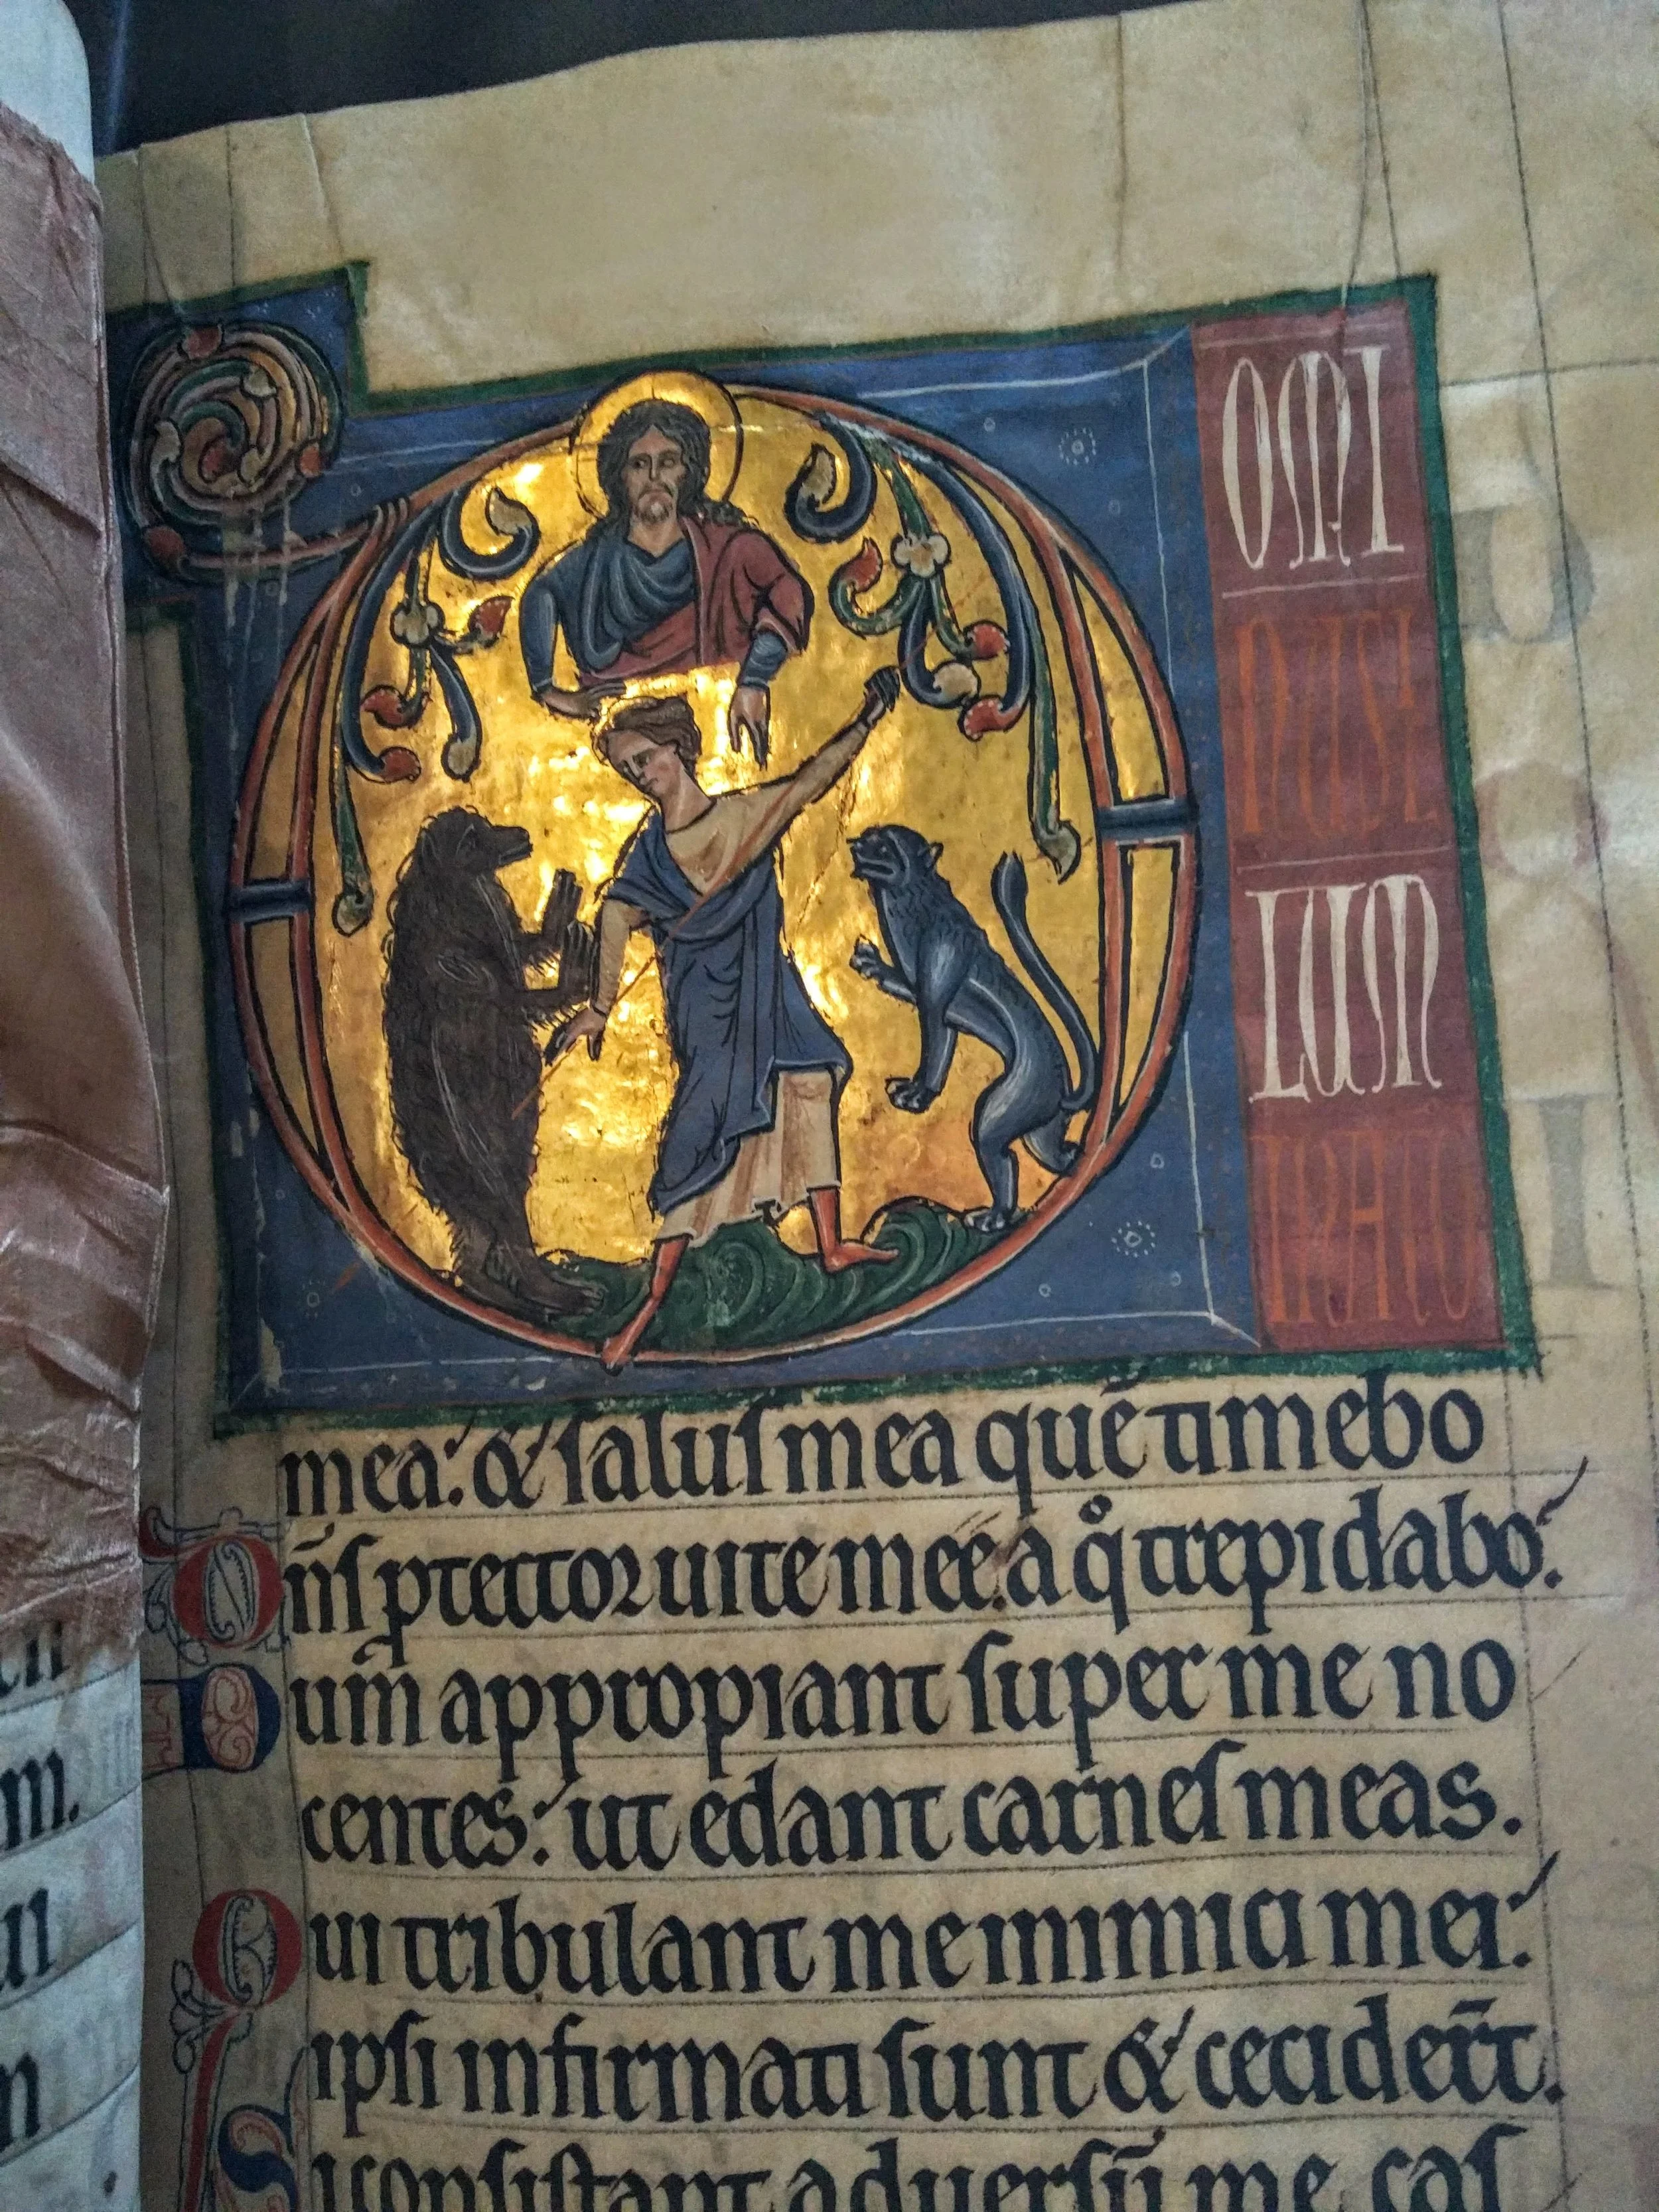 D
OMI
NUSI
LUM
INATIO
mea: & ſaluſ mea quē timebo
Dn̄ſ ꝓtector uite mee: a qͦ trepidabo:
Dum appropiant ſuper me no
centes: ut edant carneſ meas.
Qui tribulant me inimici mei:
ipſi infirmati ſunt & cecider̄t.
Si conſiſtant aduerſū me caſ